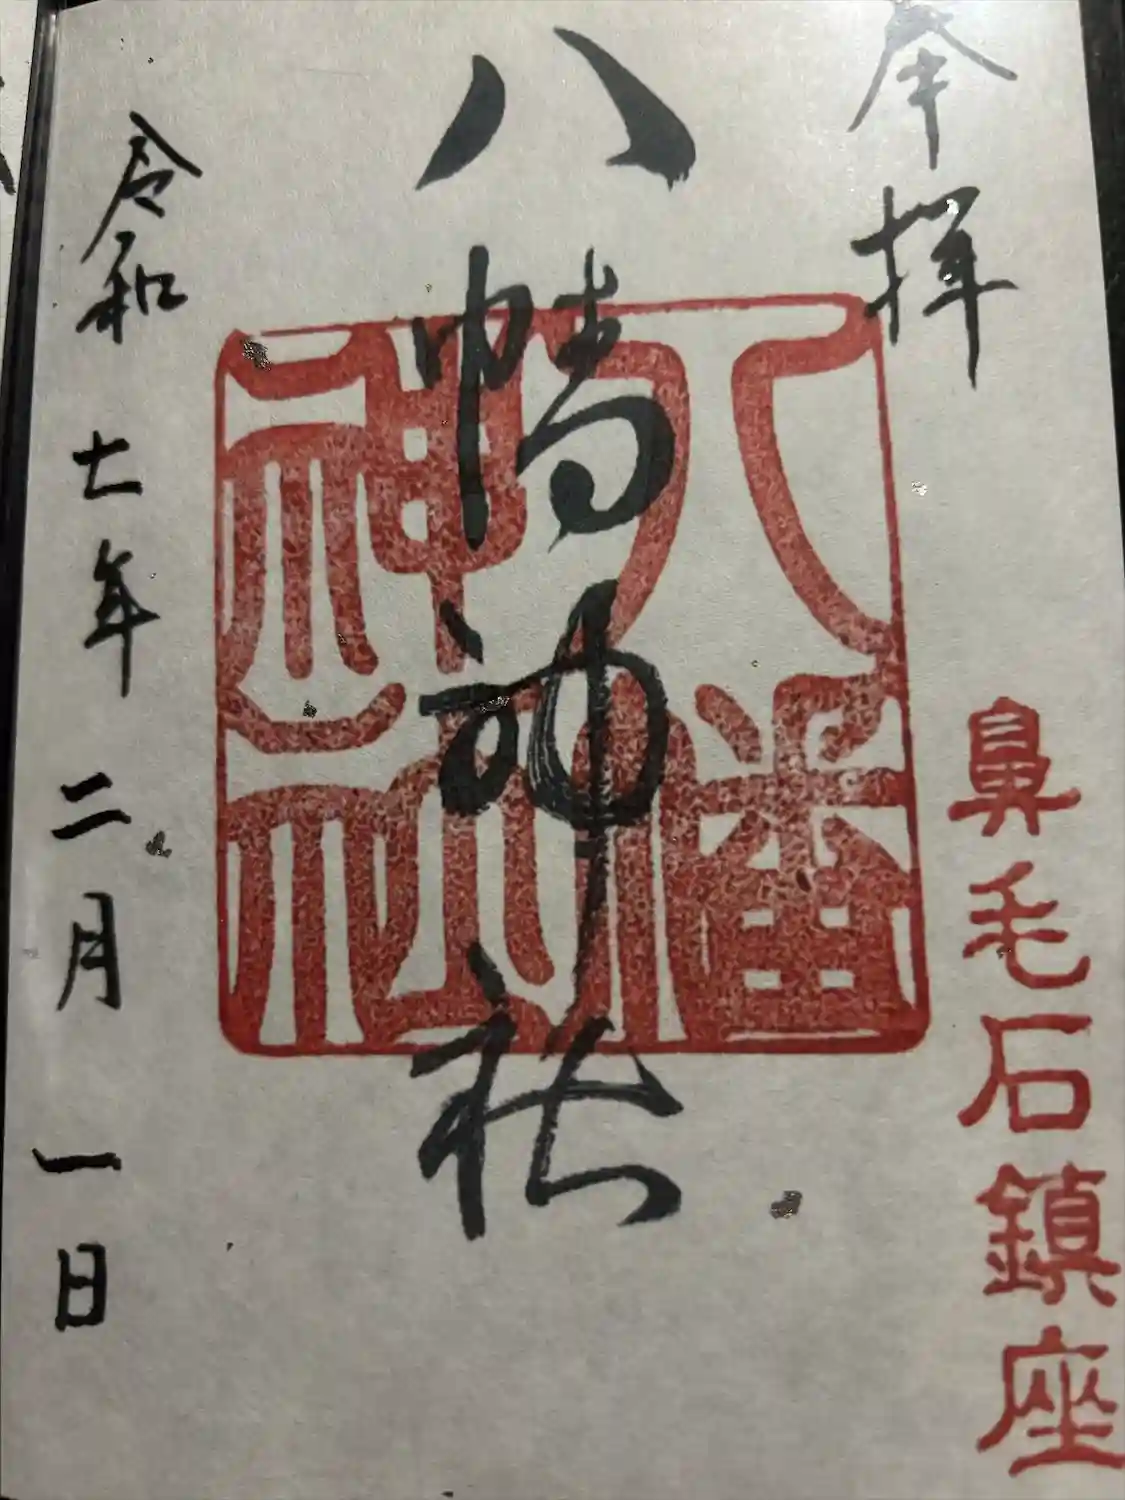 奉拝
鼻毛石鎮座
八幡神社
八幡神社
令和七年二月一日